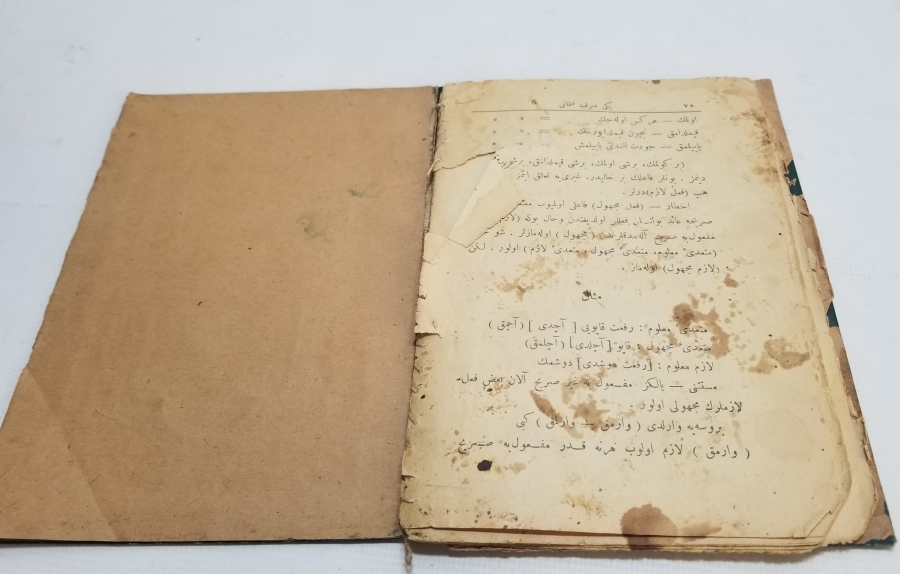 ٧٨ يكى صرف عثمانى
اولمك — هر كس اوله جك = » »
قيملدامق — بچون قيمدايورسك = » »
ياپيلمق — جودت افندى ياپيلمش » »
(بر كولمك، برشى اولمك، برشى قيملدانمق، برشى
ديمز . بونلر فاعلك بر حاليدر. غيرى يه تعلق ايتمز
هپ (فعل لازم) درلر .
اخطار — (فعل مجهول) فاعلى اولميوب مفعول
صريحه عائد بولنان فعللر اولديغندن وحال بوكه (لازم
مفعول به صريح آله مدقلرندن (مجهول) اوله مازلر . شو
(متعدئ معلوم، متعدئ مجهول، متعدئ لازم) اولور . لكن
(لازم مجهول) اوله ماز .
مثال
متعدئ معلوم : رفعت قاپويى [آچدى] (آچمق)
متعدئ مجهول : قاپو [آچلدى] (آچلمق)
لازم معلوم : [رفعت دوشدى] دوشمك
مستثنى — يالكز مفعول به غير صريح آلان بعض فعل-
لازملرك مجهولى اولور .
بروسه يه وارلدى (وارمق — وارلمق) كبى
(وارمق) لازم اولوب هرنه قدر مفعول به صريح